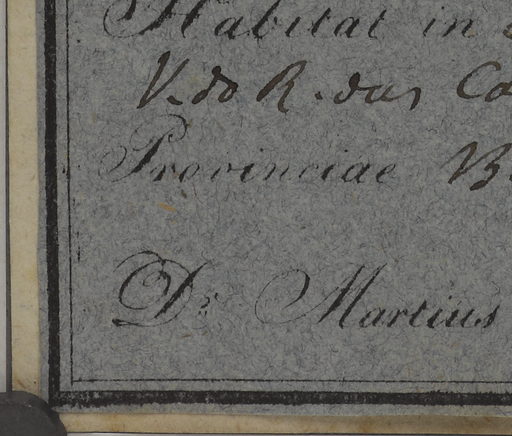 Habitat in
V. do R. das Co
Provinciae B
Dr. Martius